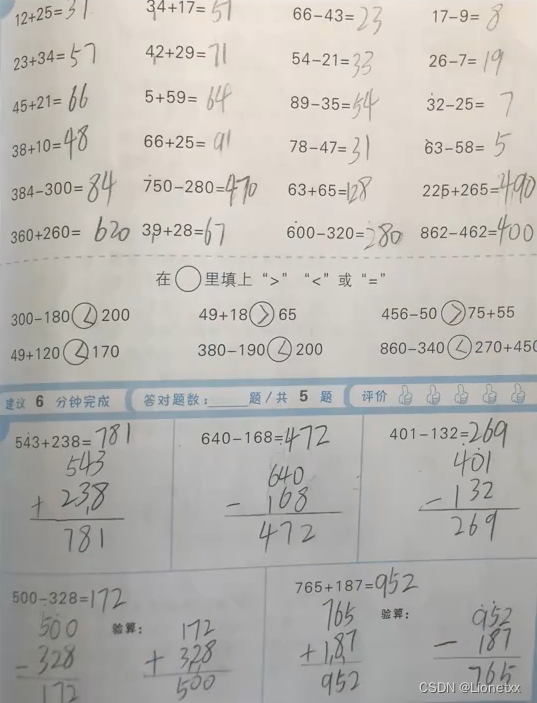 12+25=37 34+17=51 66-43=23 17-9=8
23+34=57 42+29=71 54-21=33 26-7=19
45+21=66 5+59=64 89-35=54 32-25=7
38+10=48 66+25=91 78-47=31 63-58=5
384-300=84 750-280=470 63+65=128 225+265=490
360+260=620 39+28=67 600-320=280 862-462=400
在○里填上“>”“<”或“=”
300-180<200 49+18>65 456-50>75+55
49+120<170 380-190<200 860-340<270+450
建议 6 分钟完成 答对题数:____题/共 5 题 评价
543+238=781 640-168=472 401-132=269
543 640 401
+238 -168 -132
781 472 269
500-328=172 765+187=952
500 验算: 172 765 验算: 952
-328 +328 +187 -187
172 500 952 765
CSDN @Lionetxx